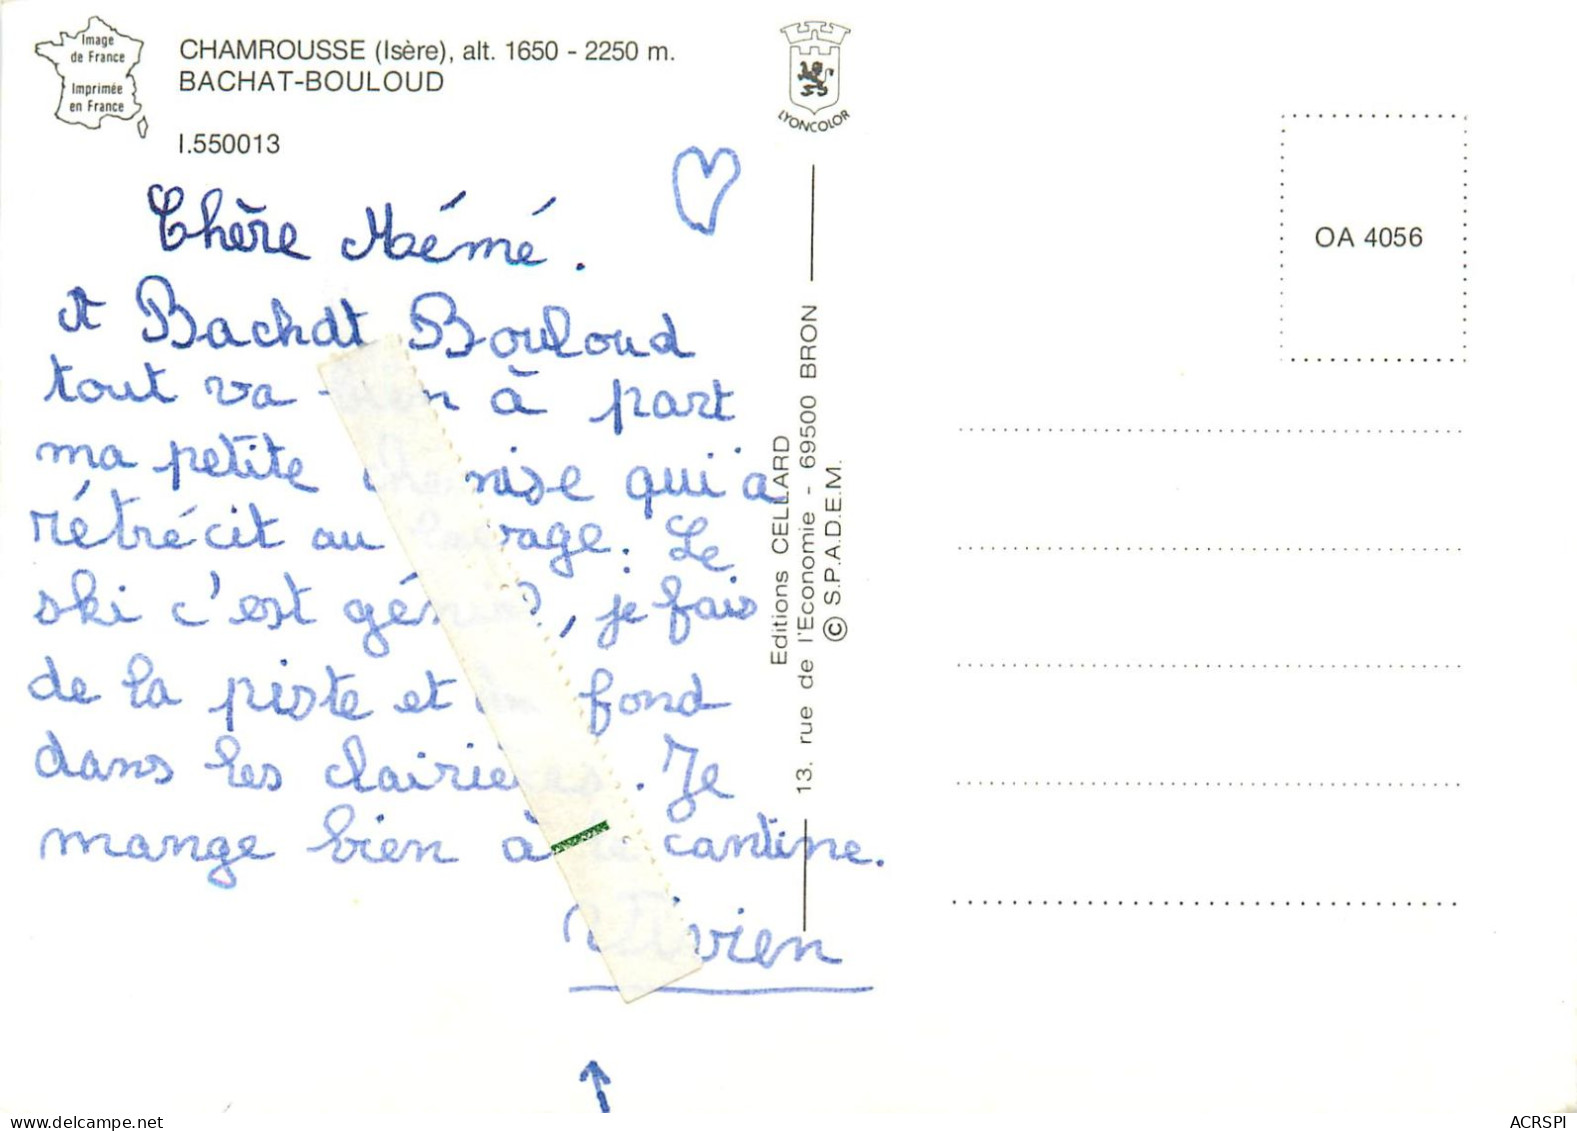 Image
de France
Imprimée
en France
CHAMROUSSE (Isère), alt. 1650 - 2250 m.
BACHAT-BOULOUD
I.550013
LYONCOLOR
Chère Mémé.
A Bachat Bouloud
tout va bien à part
ma petite chemise qui a
rétrécit au lavage. Le
ski c'est génial, je fais
de la piste et du fond
dans les clairières. Je
mange bien à la cantine.
Vivien
Editions CELLARD
13. rue de l'Economie - 69500 BRON
© S.P.A.D.E.M.
OA 4056
www.delcampe.net
ACRSPI